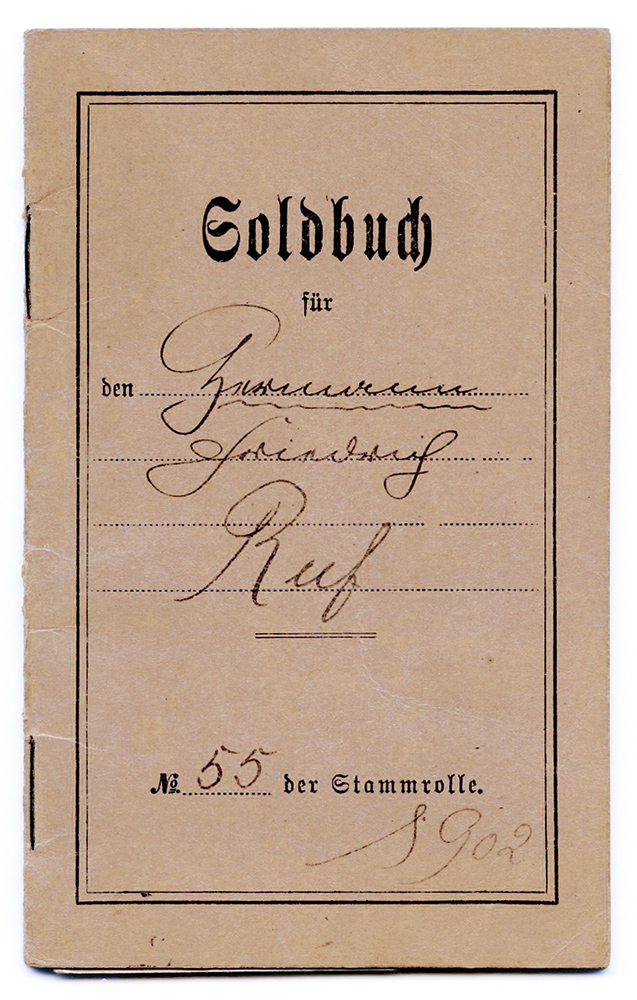 Soldbuch
für
den Hermann
Friedrich
Ruf
№ 55 der Stammrolle.
1902